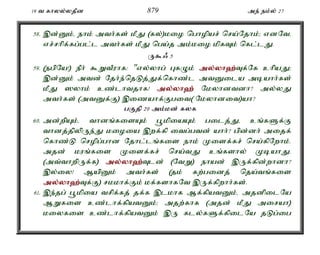 19 வ காலல்லதீன 879 அந் நம்ல் 27
58. இன்னும், நாம் அவர்கள் மீது (கல்)மழை பொழியச் செய்தோம்; எனவே,
எச்சரிக்கப்பட்ட அவர்கள் மீது பெய்த அம்மழை மிகவும் கெட்டது.
ருகூஃ 5
59. (நபியே!) நீர் கூறுவீராக: "எல்லாப் புகழும் அல்லாஹ்வுக்கே உரியது;
இன்னும் அவன் தேர்ந்தெடுத்துக்கொண்ட அவனுடைய அடியார்கள்
மீது ஸலாம் உண்டாவதாக! அல்லாஹ் மேலானவனா? அல்லது
அவர்கள் (அவனுக்கு) இணையாக்குபவை(மேலானவை)யா?
பகுதி 20 அம்மன் கலக
60. அன்றியும், வானங்களையும் பூமியையும் படைத்து, உங்களுக்கு
வானத்திலிருந்து மழையை இறக்கி வைப்பவன் யார்? பின்னர் அதைக்
கொண்டு செழிப்பான தோட்டங்களை நாம் முளைக்கச் செய்கிறோம்.
அதன் மரங்களை முளைக்கச் செய்வது உங்களால் முடியாது.
(அவ்வாறிருக்க) அல்லாஹ்வுடன் (வேறு) நாயன் இருக்கின்றானா?
இல்லை! ஆயினும் அவர்கள் (தம் கற்பனைத் தெய்வங்களை
அல்லாஹ்வுக்கு) சமமாக்கும் மக்களாகவே இருக்கிறார்கள்.
61. இந்தப் பூமியை வசிக்கத் தக்க இடமாக ஆக்கியவனும், அதனிடையே
ஆறுகளை உண்டாக்கியவனும்; அதற்காக (அதன் மீது அசையா)
மலைகளை உண்டாக்கியவனும் இரு கடல்களுக்கிடையே தடுப்பை